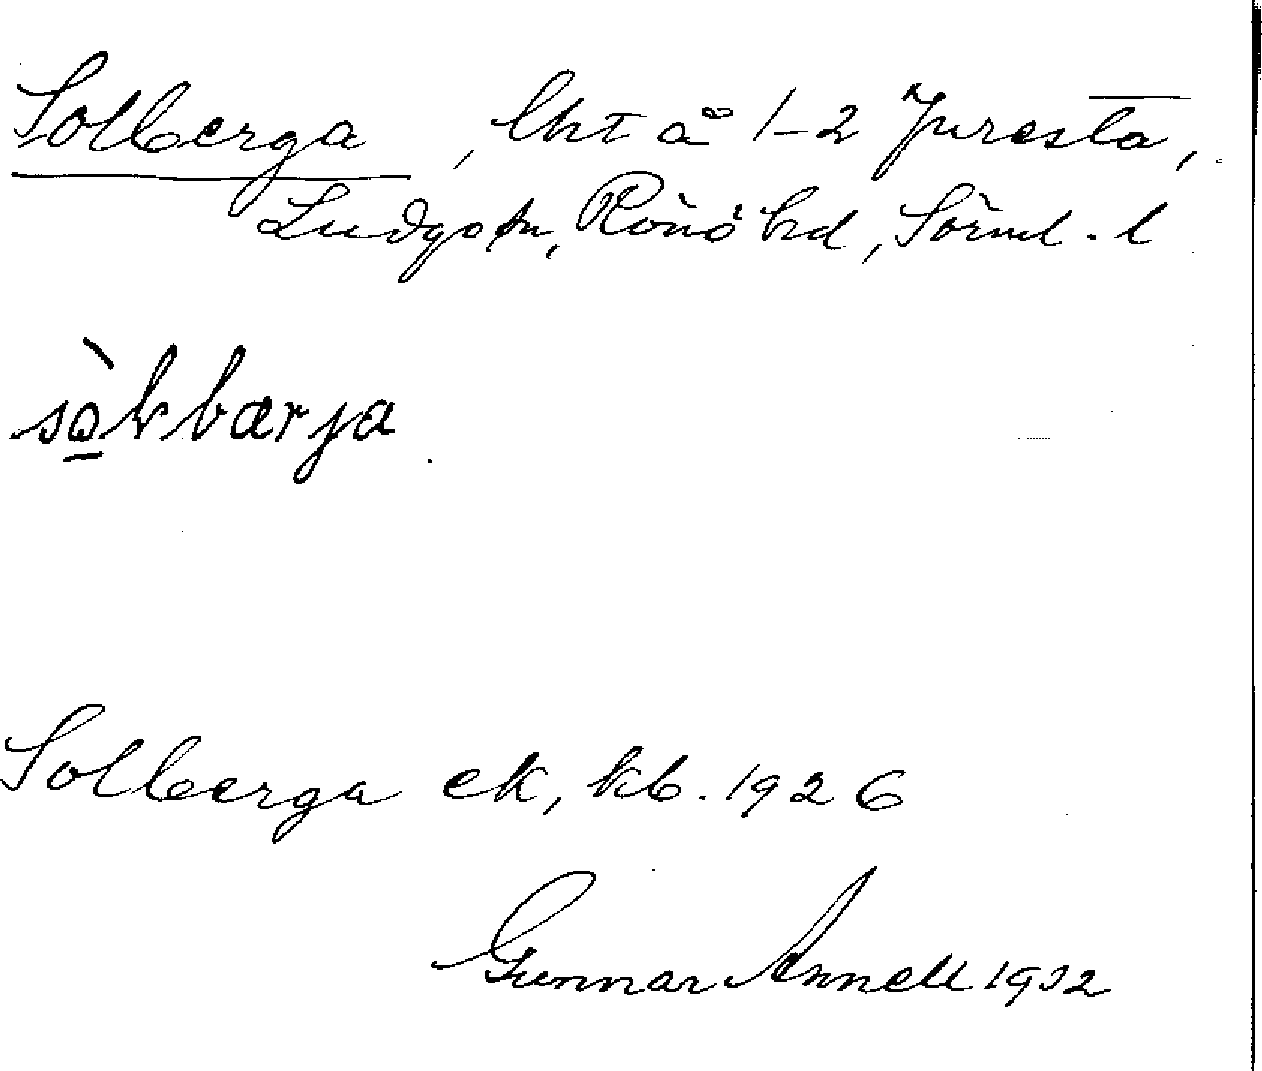 Solberga, lht å 1-2 Juresta,
Ludgo sn, Rönö hd, Sörml. l
sò̠lbærja.
Solberga ek, kb. 1926
Gunnar Annell 1932